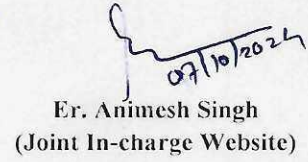 07/10/2024
Er. Animesh Singh
(Joint In-charge Website)